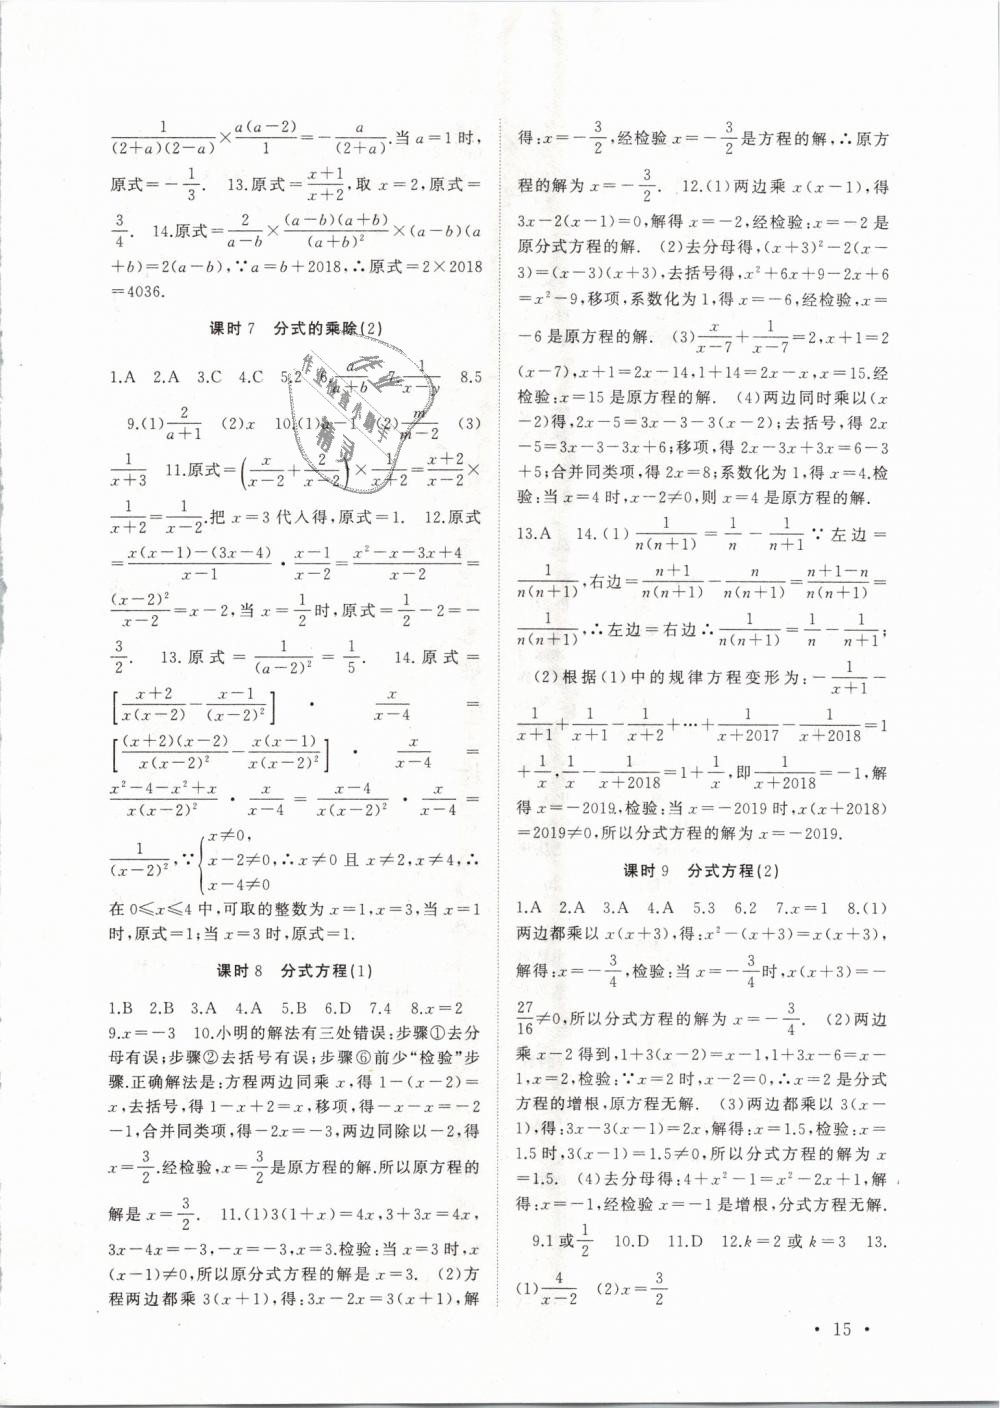 \frac{1}{(2+a)(2-a)}×\frac{a(a-2)}{1}=-\frac{a}{(2+a)}.当 a=1 时,
原式=-\frac{1}{3}. 13.原式=\frac{x+1}{x+2},取 x=2,原式=
\frac{3}{4}. 14.原式=\frac{2}{a-b}×\frac{(a-b)(a+b)}{(a+b)²}×(a-b)(a
+b)=2(a-b),∵a=b+2018,∴原式=2×2018
=4036.
课时 7 分式的乘除(2)
1.A 2.A 3.C 4.C 5.2 6.\frac{a}{a+b} 7.\frac{1}{x-y} 8.5
9.(1)\frac{2}{a+1} (2)x 10.(1)a-1 (2)\frac{m}{m-2} (3)
\frac{1}{x+3} 11.原式=(\frac{x}{x-2}+\frac{2}{x-2})×\frac{1}{x+2}=\frac{x+2}{x-2}×
\frac{1}{x+2}=\frac{1}{x-2}.把 x=3 代人得,原式=1. 12.原式
=\frac{x(x-1)-(3x-4)}{x-1}·\frac{x-1}{x-2}=\frac{x²-x-3x+4}{x-2}=
\frac{(x-2)²}{x-2}=x-2,当 x=\frac{1}{2}时,原式=\frac{1}{2}-2=-
\frac{3}{2}. 13.原式=\frac{1}{(a-2)²}=\frac{1}{5}. 14.原式=
[\frac{x+2}{x(x-2)}-\frac{x-1}{(x-2)²}]·\frac{x}{x-4}=
[\frac{(x+2)(x-2)}{x(x-2)²}-\frac{x(x-1)}{x(x-2)²}]·\frac{x}{x-4}=
\frac{x²-4-x²+x}{x(x-2)²}·\frac{x}{x-4}=\frac{x-4}{x(x-2)²}·\frac{x}{x-4}=
\frac{1}{(x-2)²},∵{x≠0,
x-2≠0,∴x≠0 且 x≠2,x≠4,∴
x-4≠0
在 0≤x≤4 中,可取的整数为 x=1,x=3,当 x=1
时,原式=1;当 x=3 时,原式=1.
课时 8 分式方程(1)
1.B 2.B 3.A 4.A 5.B 6.D 7.4 8.x=2
9.x=-3 10.小明的解法有三处错误:步骤①去分
母有误;步骤②去括号有误;步骤⑥前少“检验”步
骤.正确解法是:方程两边同乘 x,得 1-(x-2)=
x,去括号,得 1-x+2=x,移项,得-x-x=-2
-1,合并同类项,得-2x=-3,两边同除以-2,得
x=\frac{3}{2}.经检验,x=\frac{3}{2}是原方程的解.所以原方程的
解是 x=\frac{3}{2}. 11.(1)3(1+x)=4x,3+3x=4x,
3x-4x=-3,-x=-3,x=3.检验:当 x=3 时,x
(x-1)≠0,所以原分式方程的解是 x=3. (2)方
程两边都乘 3(x+1),得:3x-2x=3(x+1),解
得:x=-\frac{3}{2},经检验 x=-\frac{3}{2}是方程的解,∴原方
程的解为 x=-\frac{3}{2}. 12.(1)两边乘 x(x-1),得
3x-2(x-1)=0,解得 x=-2,经检验:x=-2 是
原分式方程的解. (2)去分母得,(x+3)²-2(x-
3)=(x-3)(x+3),去括号得,x²+6x+9-2x+6
=x²-9,移项,系数化为 1,得 x=-6,经检验,x=
-6 是原方程的解. (3)\frac{x}{x-7}+\frac{1}{x-7}=2,x+1=2
(x-7),x+1=2x-14,1+14=2x-x,x=15.经
检验:x=15 是原方程的解. (4)两边同时乘以(x
-2)得,2x-5=3x-3-3(x-2);去括号,得 2x
-5=3x-3-3x+6;移项,得 2x-3x+3x=6-3
+5;合并同类项,得 2x=8;系数化为 1,得 x=4.检
验:当 x=4 时,x-2≠0,则 x=4 是原方程的解.
13.A 14.(1)\frac{1}{n(n+1)}=\frac{1}{n}-\frac{1}{n+1}∵左边=
\frac{1}{n(n+1)},右边=\frac{n+1}{n(n+1)}-\frac{n}{n(n+1)}=\frac{n+1-n}{n(n+1)}=
\frac{1}{n(n+1)},∴左边=右边∴\frac{1}{n(n+1)}=\frac{1}{n}-\frac{1}{n+1};
(2)根据(1)中的规律方程变形为:-\frac{1}{x+1}-
\frac{1}{x+1}+\frac{1}{x+1}-\frac{1}{x+2}+…+\frac{1}{x+2017}-\frac{1}{x+2018}=1
+\frac{1}{x},\frac{1}{x}-\frac{1}{x+2018}=1+\frac{1}{x},即\frac{1}{x+2018}=-1,解
得 x=-2019,检验:当 x=-2019 时,x(x+2018)
=2019≠0,所以分式方程的解为 x=-2019.
课时 9 分式方程(2)
1.A 2.A 3.A 4.A 5.3 6.2 7.x=1 8.(1)
两边都乘以 x(x+3),得:x²-(x+3)=x(x+3),
解得:x=-\frac{3}{4},检验:当 x=-\frac{3}{4}时,x(x+3)=-
\frac{27}{16}≠0,所以分式方程的解为 x=-\frac{3}{4}. (2)两边
乘 x-2 得到,1+3(x-2)=x-1,1+3x-6=x-
1,x=2,检验:∵x=2 时,x-2=0,∴x=2 是分式
方程的增根,原方程无解. (3)两边都乘以 3(x-
1),得:3x-3(x-1)=2x,解得:x=1.5,检验:x=
1.5 时,3(x-1)=1.5≠0,所以分式方程的解为 x
=1.5. (4)去分母得:4+x²-1=x²-2x+1,解
得:x=-1,经检验 x=-1 是增根,分式方程无解.
9.1 或\frac{1}{2} 10.D 11.D 12.k=2 或 k=3 13.
(1)\frac{4}{x-2} (2)x=\frac{3}{2}
• 15 •
作业
作业检查小助手
精灵